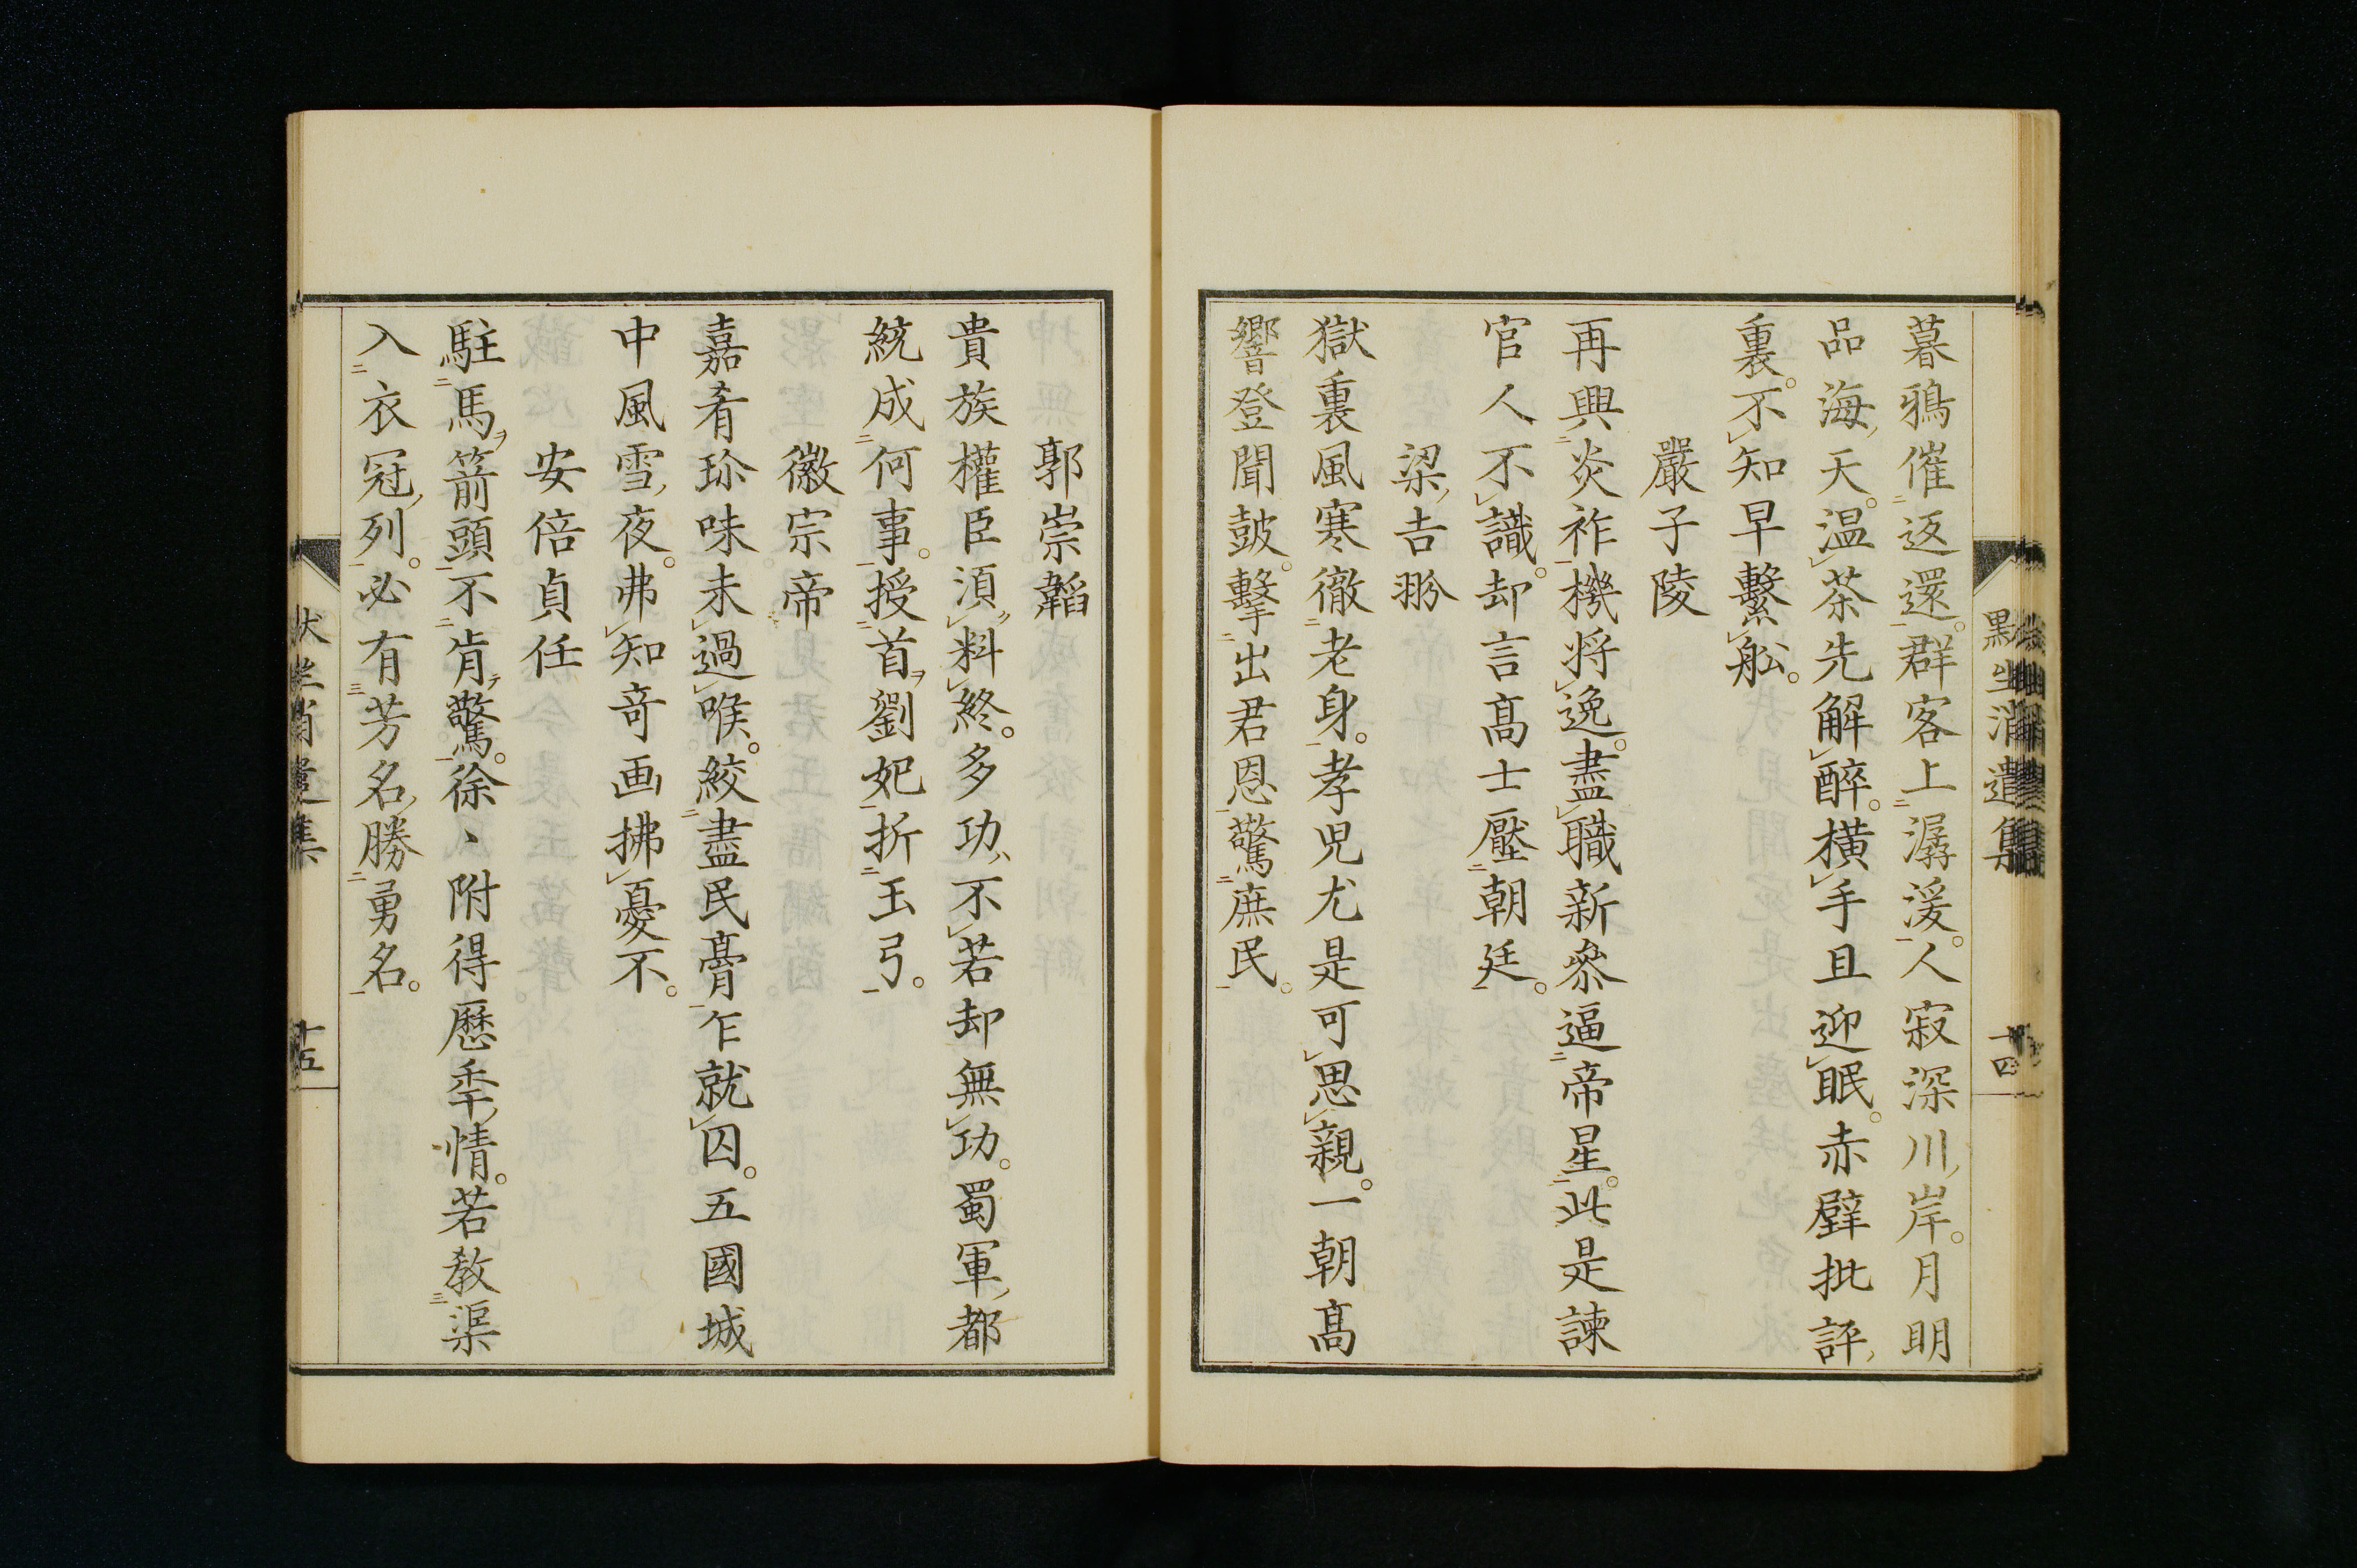 暮鴉催返還。群客上潺湲。人寂深川岸。月明
品海天。温茶先解醉。横手且迎眠。赤壁批評
裏。不知早繫舩。
嚴子陵
再興炎祚機将逸。盡職新參逼帝星。此是諫
官人不識。却言髙士壓朝廷。
梁吉翂
獄裏風寒徹老身。孝児尤是可思親。一朝髙
響登聞鼓。擊出君恩驚庶民。
十四
郭崇韜
貴族權臣須料終。多功不若却無功。蜀軍都
統成何事。授首劉妃折玉弓。
徽宗帝
嘉肴珍味未過喉。絞盡民膏乍就囚。五國城
中風雪夜。弗知竒画拂憂不。
安倍貞任
駐馬箭頭不肯驚。徐、附得歴秊情。若教渠
入衣冠列。必有芳名勝勇名。
十五